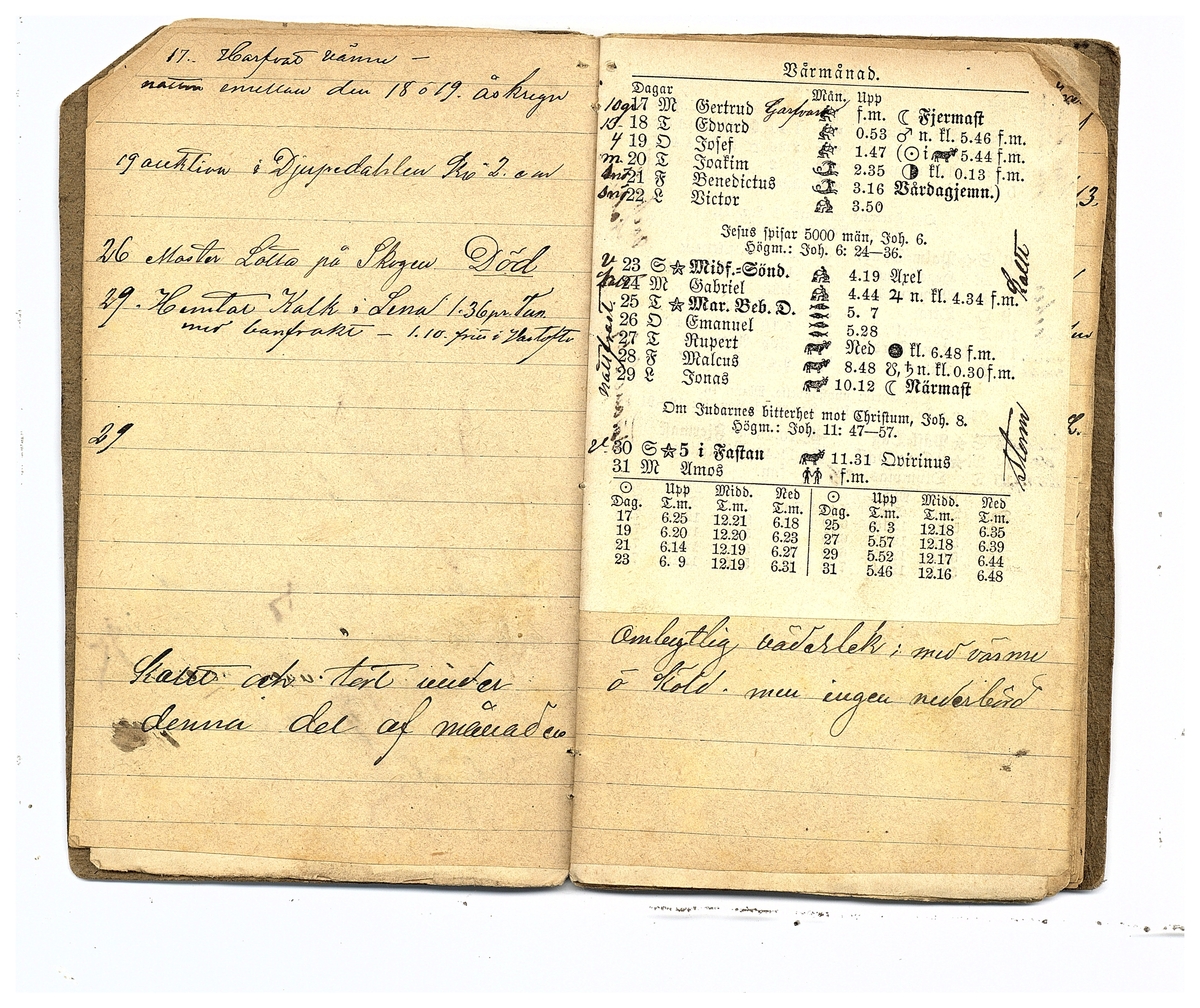 17. Harfvat värme –
natten emellan den 18 o 19. åskregn
19 auktion i Djupedahlen Kl 2. e m
26 Moster Lotta på Skogen Död
29. Hemtar Kalk i Lena 1.36 pr. Tun
med banfrakt – 1.10. fritt i Vartofta
29
Kallt och tort under
denna del af månaden
Vårmånad.
Dagar Mån. Upp
17 M Gertrud f.m. ☾ Fjermast
13. 18 T Edvard 0.53 ♂ n. kl. 5.46 f.m.
4 19 O Josef 1.47 (☉ i 5.44 f.m.
20 T Joakim 2.35 ◑ kl. 0.13 f.m.
snö 21 F Benedictus 3.16 Vårdagjemn.)
snö 22 L Victor 3.50
Jesus spisar 5000 män, Joh. 6.
Högm.: Joh. 6: 24—36.
v 23 S ☆ Midf.=Sönd. 4.19 Axel
24 M Gabriel 4.44 ♃ n. kl. 4.34 f.m.
25 T ☆ Mar. Beb. D. 5. 7
26 O Emanuel 5.28
27 T Rupert Ned ● kl. 6.48 f.m.
28 F Malcus 8.48 ☋, ♄ n. kl. 0.30 f.m.
29 L Jonas 10.12 ☾ Närmast
nattfrost
Kallt
Om Judarnes bitterhet mot Christum, Joh. 8.
Högm.: Joh. 11: 47—57.
v 30 S ☆ 5 i Fastan 11.31 Qvirinus
31 M Amos f.m.
Storm
☉ Upp Midd. Ned ☉ Upp Midd. Ned
Dag. T.m. T.m. T.m. Dag. T.m. T.m. T.m.
17 6.25 12.21 6.18 25 6. 3 12.18 6.35
19 6.20 12.20 6.23 27 5.57 12.18 6.39
21 6.14 12.19 6.27 29 5.52 12.17 6.44
23 6. 9 12.19 6.31 31 5.46 12.16 6.48
Ombytlig väderlek; med värme
o Köld. men ingen nederbörd